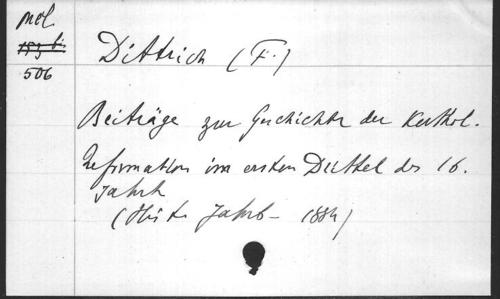 Mel.
506
Dittrich (F.)
Beiträge zur Geschichte der Kathol.
Reformation im ersten Drittel des 16.
Jahrh
(Hist. Jahrb- 1884)